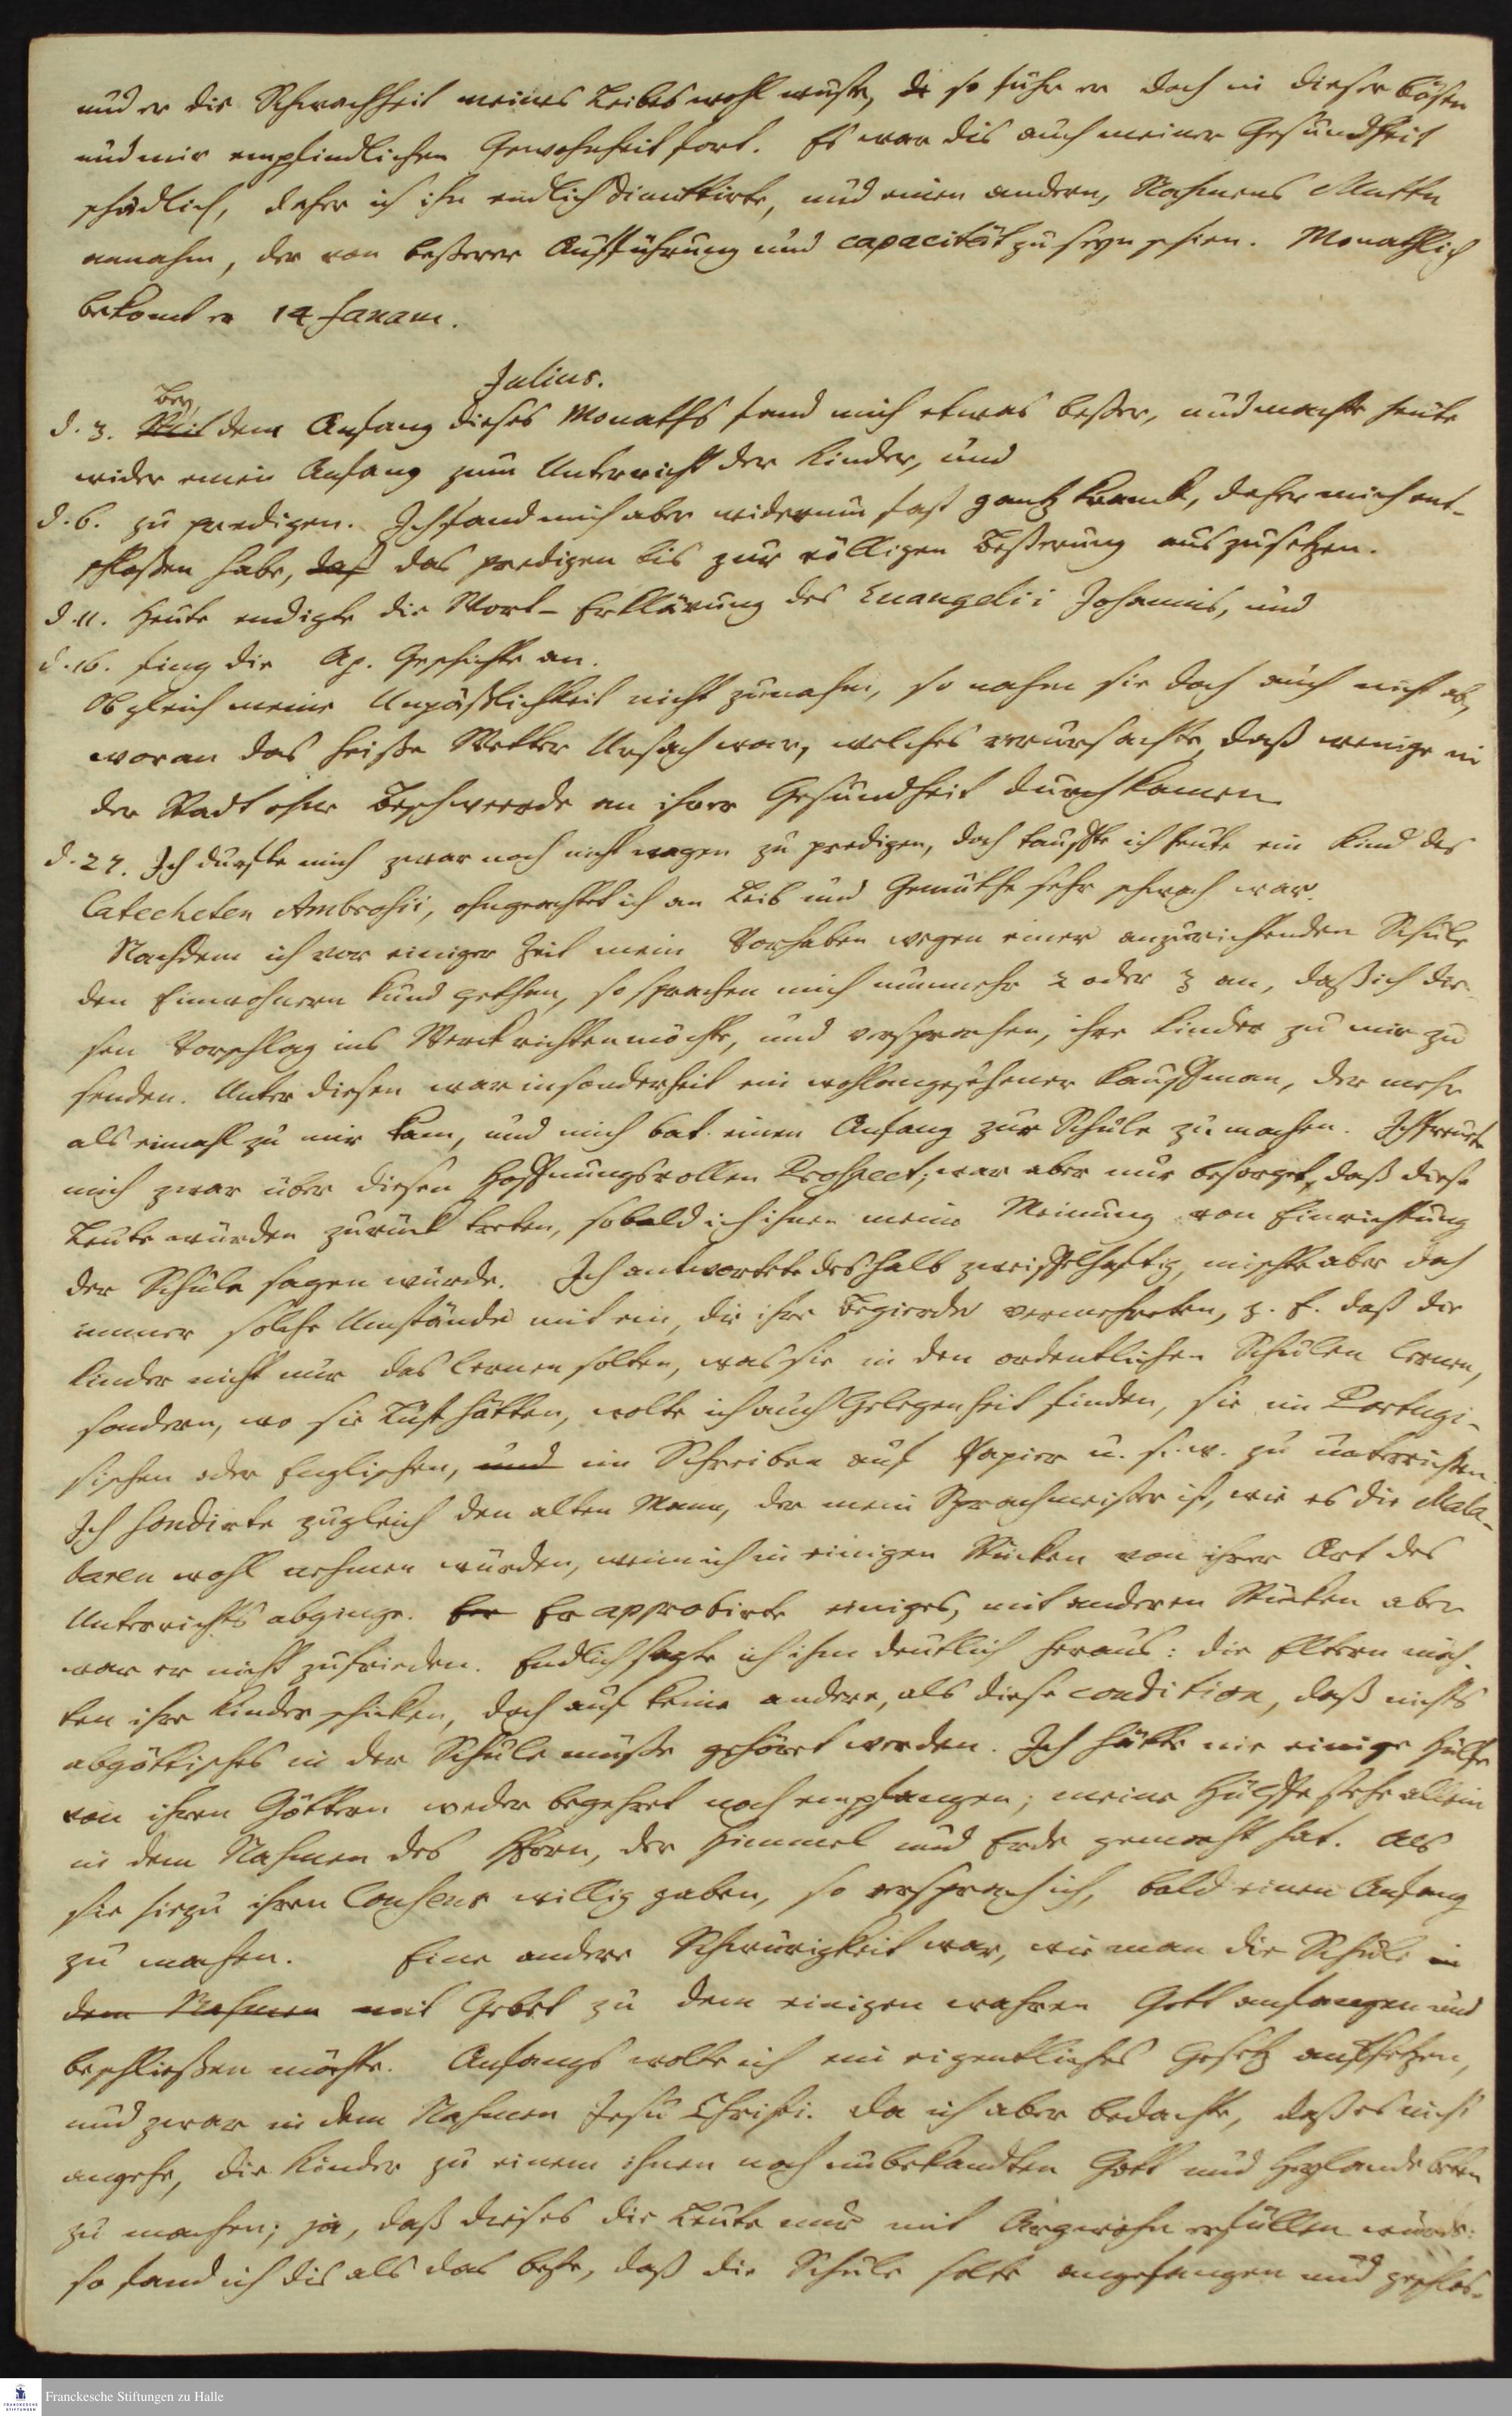 und er die Schwachheit meines Leibes wohl wuste, de so fuhr er doch in dieser bösen
und mir empfindlichen Gewohnheit fort. Es war dis auch meiner Gesundheit
schädlich, daher ich ihn endlich dimittirte, und einen andern, Nahmens Muttu
annahm, der von beßerer Aufführung und capacität zu seyn schien. Monathlich
bekomt er 14 fanam.
Julius.
d. 3. Mit Bey dem Anfang dieses Monaths fand mich etwas beßer, und machte heute
wider einen Anfang zum Unterricht der Kinder, und
d. 6. zu predigen. Ich fand mich aber widerum fast gantz kranck, daher mich ent-
schloßen habe, daß das predigen bis zur völligen Beßerung auszusetzen.
d. 11. Heute endigte die Wort-Erklärung des Euangelii Johannis, und
d. 16. fing die Ap. Geschichte an.
Obgleich meine Unpäßlichkeit nicht zunahm, so nahm sie doch auch nicht ab,
woran das heiße Wetter Ursach war, welches verursachte, daß wenige in
der Stadt ohne Beschwerde an ihrer Gesundheit durchkamen
d. 27. Ich durfte mich zwar noch nicht wagen zu predigen, doch tauffte ich heute ein Kind des
Catecheten Ambrosii, ohngeachtet ich an Leib und Gemüthe sehr schwach war.
Nachdem ich vor einiger Zeit mein Vorhaben wegen einer anzurichtenden Schule
den Einwohnern kund gethan, so sprachen mich nunmehr 2 oder 3 an, daß ich die-
sen Vorschlag ins Werck richten möchte, und versprachen, ihre Kinder zu mir zu
senden. Unter diesen war insonderheit ein wohlangesehener Kauffman, der mehr
als einmahl zu mir kam, und mich bat einen Anfang zur Schule zu machen. Ich freute
mich zwar über diesen Hoffnungsvollen Prospect; war aber nur besorget, daß diese
Leute würden zurück treten, sobald ich ihnen meine Meinung von Einrichtung
der Schule sagen würde. Ich antwortete deshalb zweiffelhaftig, mischte aber doch
immer solche Umstände mit ein, die ihre Begierde vermehreten, z. E. daß die
Kinder nicht nur das lernen solten, was sie in den ordentlichen Schulen lernen,
sondern, wo sie Lust hätten, wolte ich auch Gelegenheit finden, sie im Portugi-
sischen oder Englischen, und im Schreiben auf Papier u. s. w. zu unterrichten.
Ich sondirte zugleich den alten Mann, der mein Sprachmeister ist, wie es die Mala-
baren wohl nehmen würden, wenn ich in einigen Stücken von ihrer Art des
Unterrichts abginge. Er approbirte einiges, mit anderen Stücken aber
war er nicht zufrieden. Endlich sagte ich ihm deutlich heraus: die Eltern möch-
ten ihre Kinder schicken, doch auf keine andere, als diese condition, daß nichts
abgöttisches in der Schule müste gehöret werden. Ich hätte nie einige Hülfe
von ihren Göttern weder begehret noch empfangen; meine Hülffe stehe allein
in dem Nahmen des Herrn, der Himmel und Erde gemacht hat. Als
sie hiezu ihren Consens willig gaben, so versprach ich, bald einen Anfang
zu machen. Eine andere Schwürigkeit war, wie man die Schule in
dem Nahmen mit Gebet zu dem einigen wahren Gott anfangen und
beschließen möchte. Anfangs wolte ich ein eigentliches Gesetz auffsetzen,
und zwar in dem Nahmen Jesu Christi. Da ich aber bedachte, daß es nicht
angehe, die Kinder zu einem ihnen noch unbekandten Gott und Heylande beten
zu machen; ja, daß dieses die Leute nur mit Argwohn erfüllen würde:
so fand ich dis als das beste, daß die Schule solte angefangen und geschlos-
Franckesche Stiftungen zu Halle